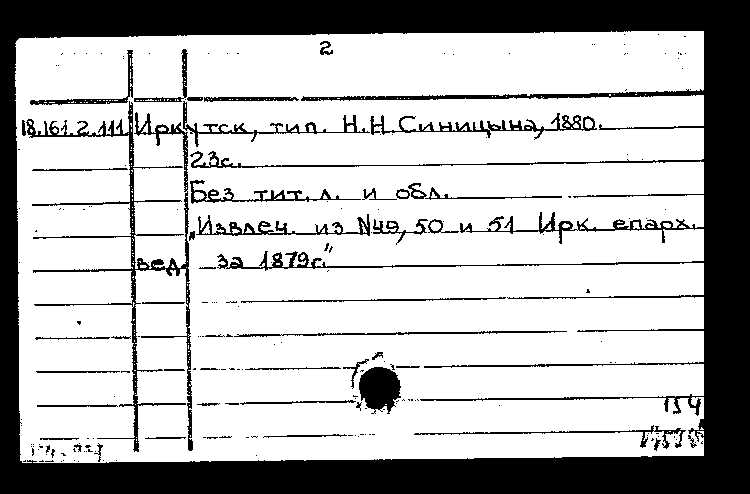 2
18.161.2.111 Иркутск, тип. Н.Н. Синицына, 1880.
23с.
Без тит. л. и обл.
„Извлеч. из №49, 50 и 51 Ирк. епарх.
вед. за 1879г."
194